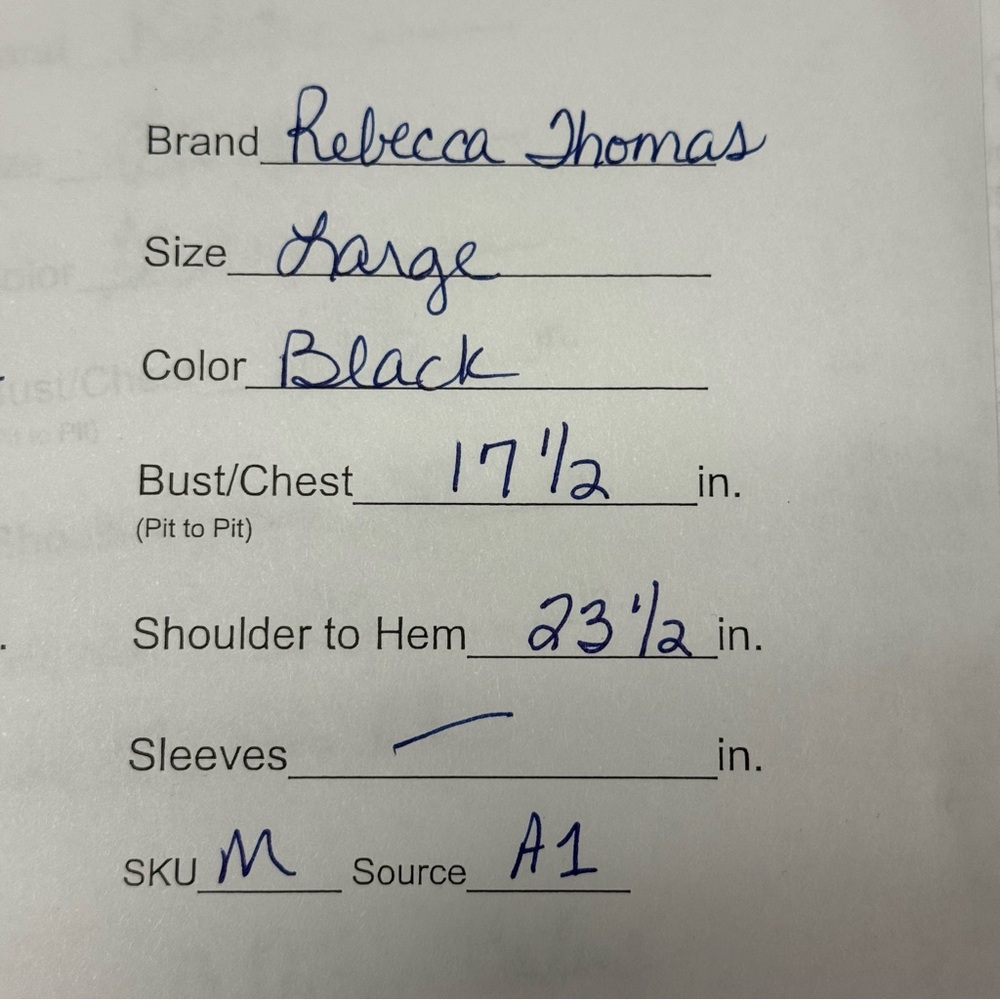 Brand Rebecca Thomas
Size Large
Color Black
Bust/Chest 17 1/2 in.
(Pit to Pit)
Shoulder to Hem 23 1/2 in.
Sleeves — in.
SKU M Source A1